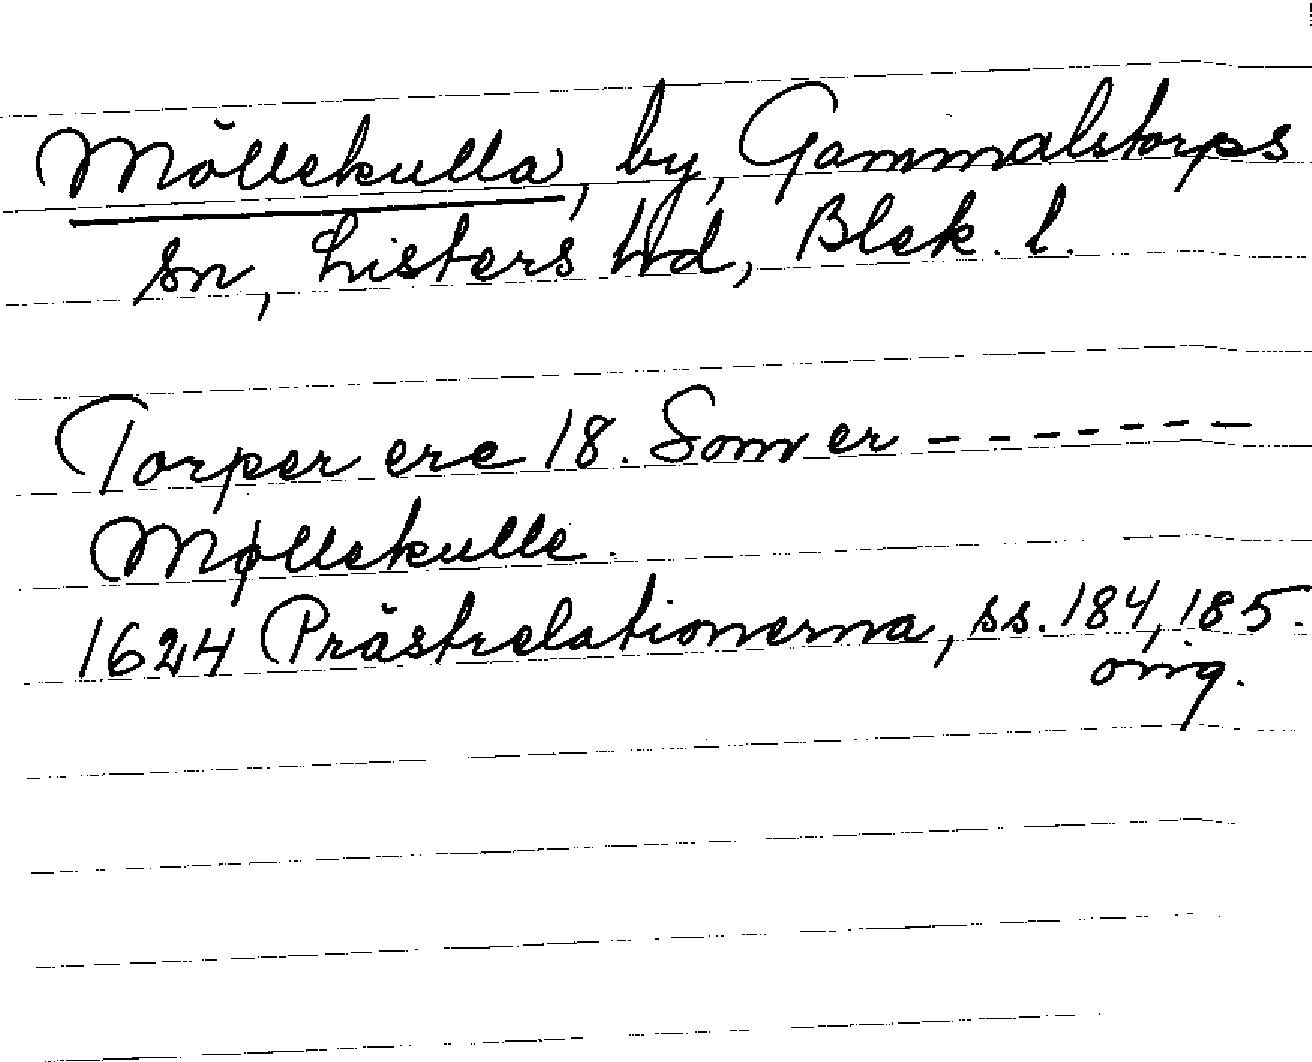 Möllekulla, by, Gammalstorps
sn, Listers hd, Blek. l.
Torper ere 18. Som er - - - - - - -
Møllekulle.
1624 Prästrelationerna, ss. 184, 185.
orig.